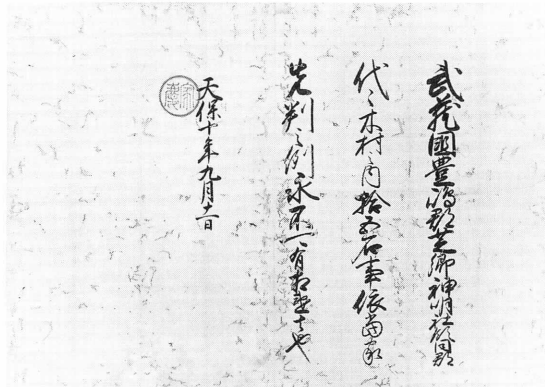 武蔵國豊嶋郡芝郷神明社領同郡
代々木村之内拾五石事依當家
先判之例永不可有相違者也
天保十年九月十一日